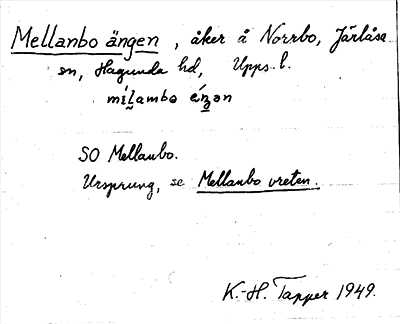 Mellanbo ängen, åker å Norrbo, Järlåsa
sn, Hagunda hd, Upps. l.
mélambo éŋən
SO Mellanbo.
Ursprung, se Mellanbo vreten.
K.-H. Tapper 1949.